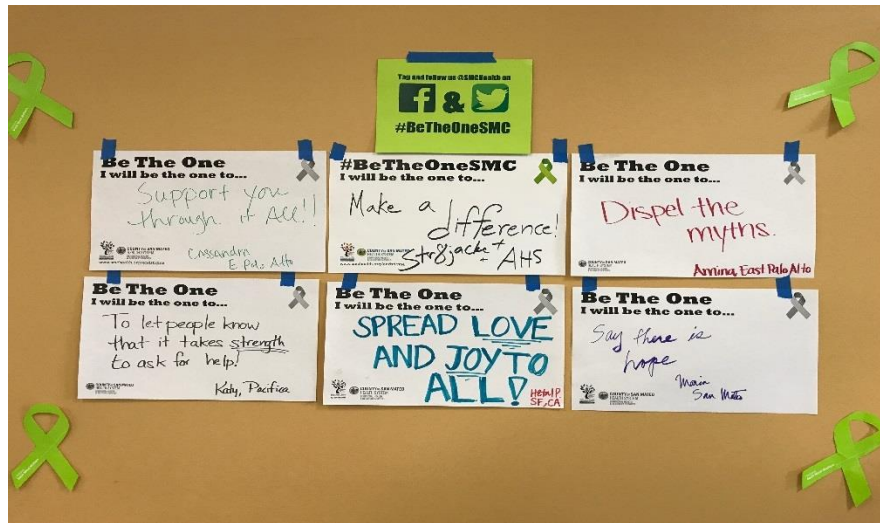 Tag and follow us @SMCHealth on
f & 
#BeTheOneSMC
Be The One
I will be the one to...
Support you
through it All!!
Cassandra
E. Palo Alto
#BeTheOneSMC
I will be the one to...
Make a
difference!
Str8jacket
AHS
Be The One
I will be the one to...
Dispel the
myths.
Annina, East Palo Alto
Be The One
I will be the one to...
To let people know
that it takes strength
to ask for help!
Katy, Pacifica
Be The One
I will be the one to...
SPREAD LOVE
AND JOY TO
ALL!
Hetal P.
SF, CA
COUNTY OF SAN MATEO
HEALTH SYSTEM
Be The One
I will be the one to...
Say there is
hope
Maria
San Mateo
COUNTY OF SAN MATEO
HEALTH SYSTEM